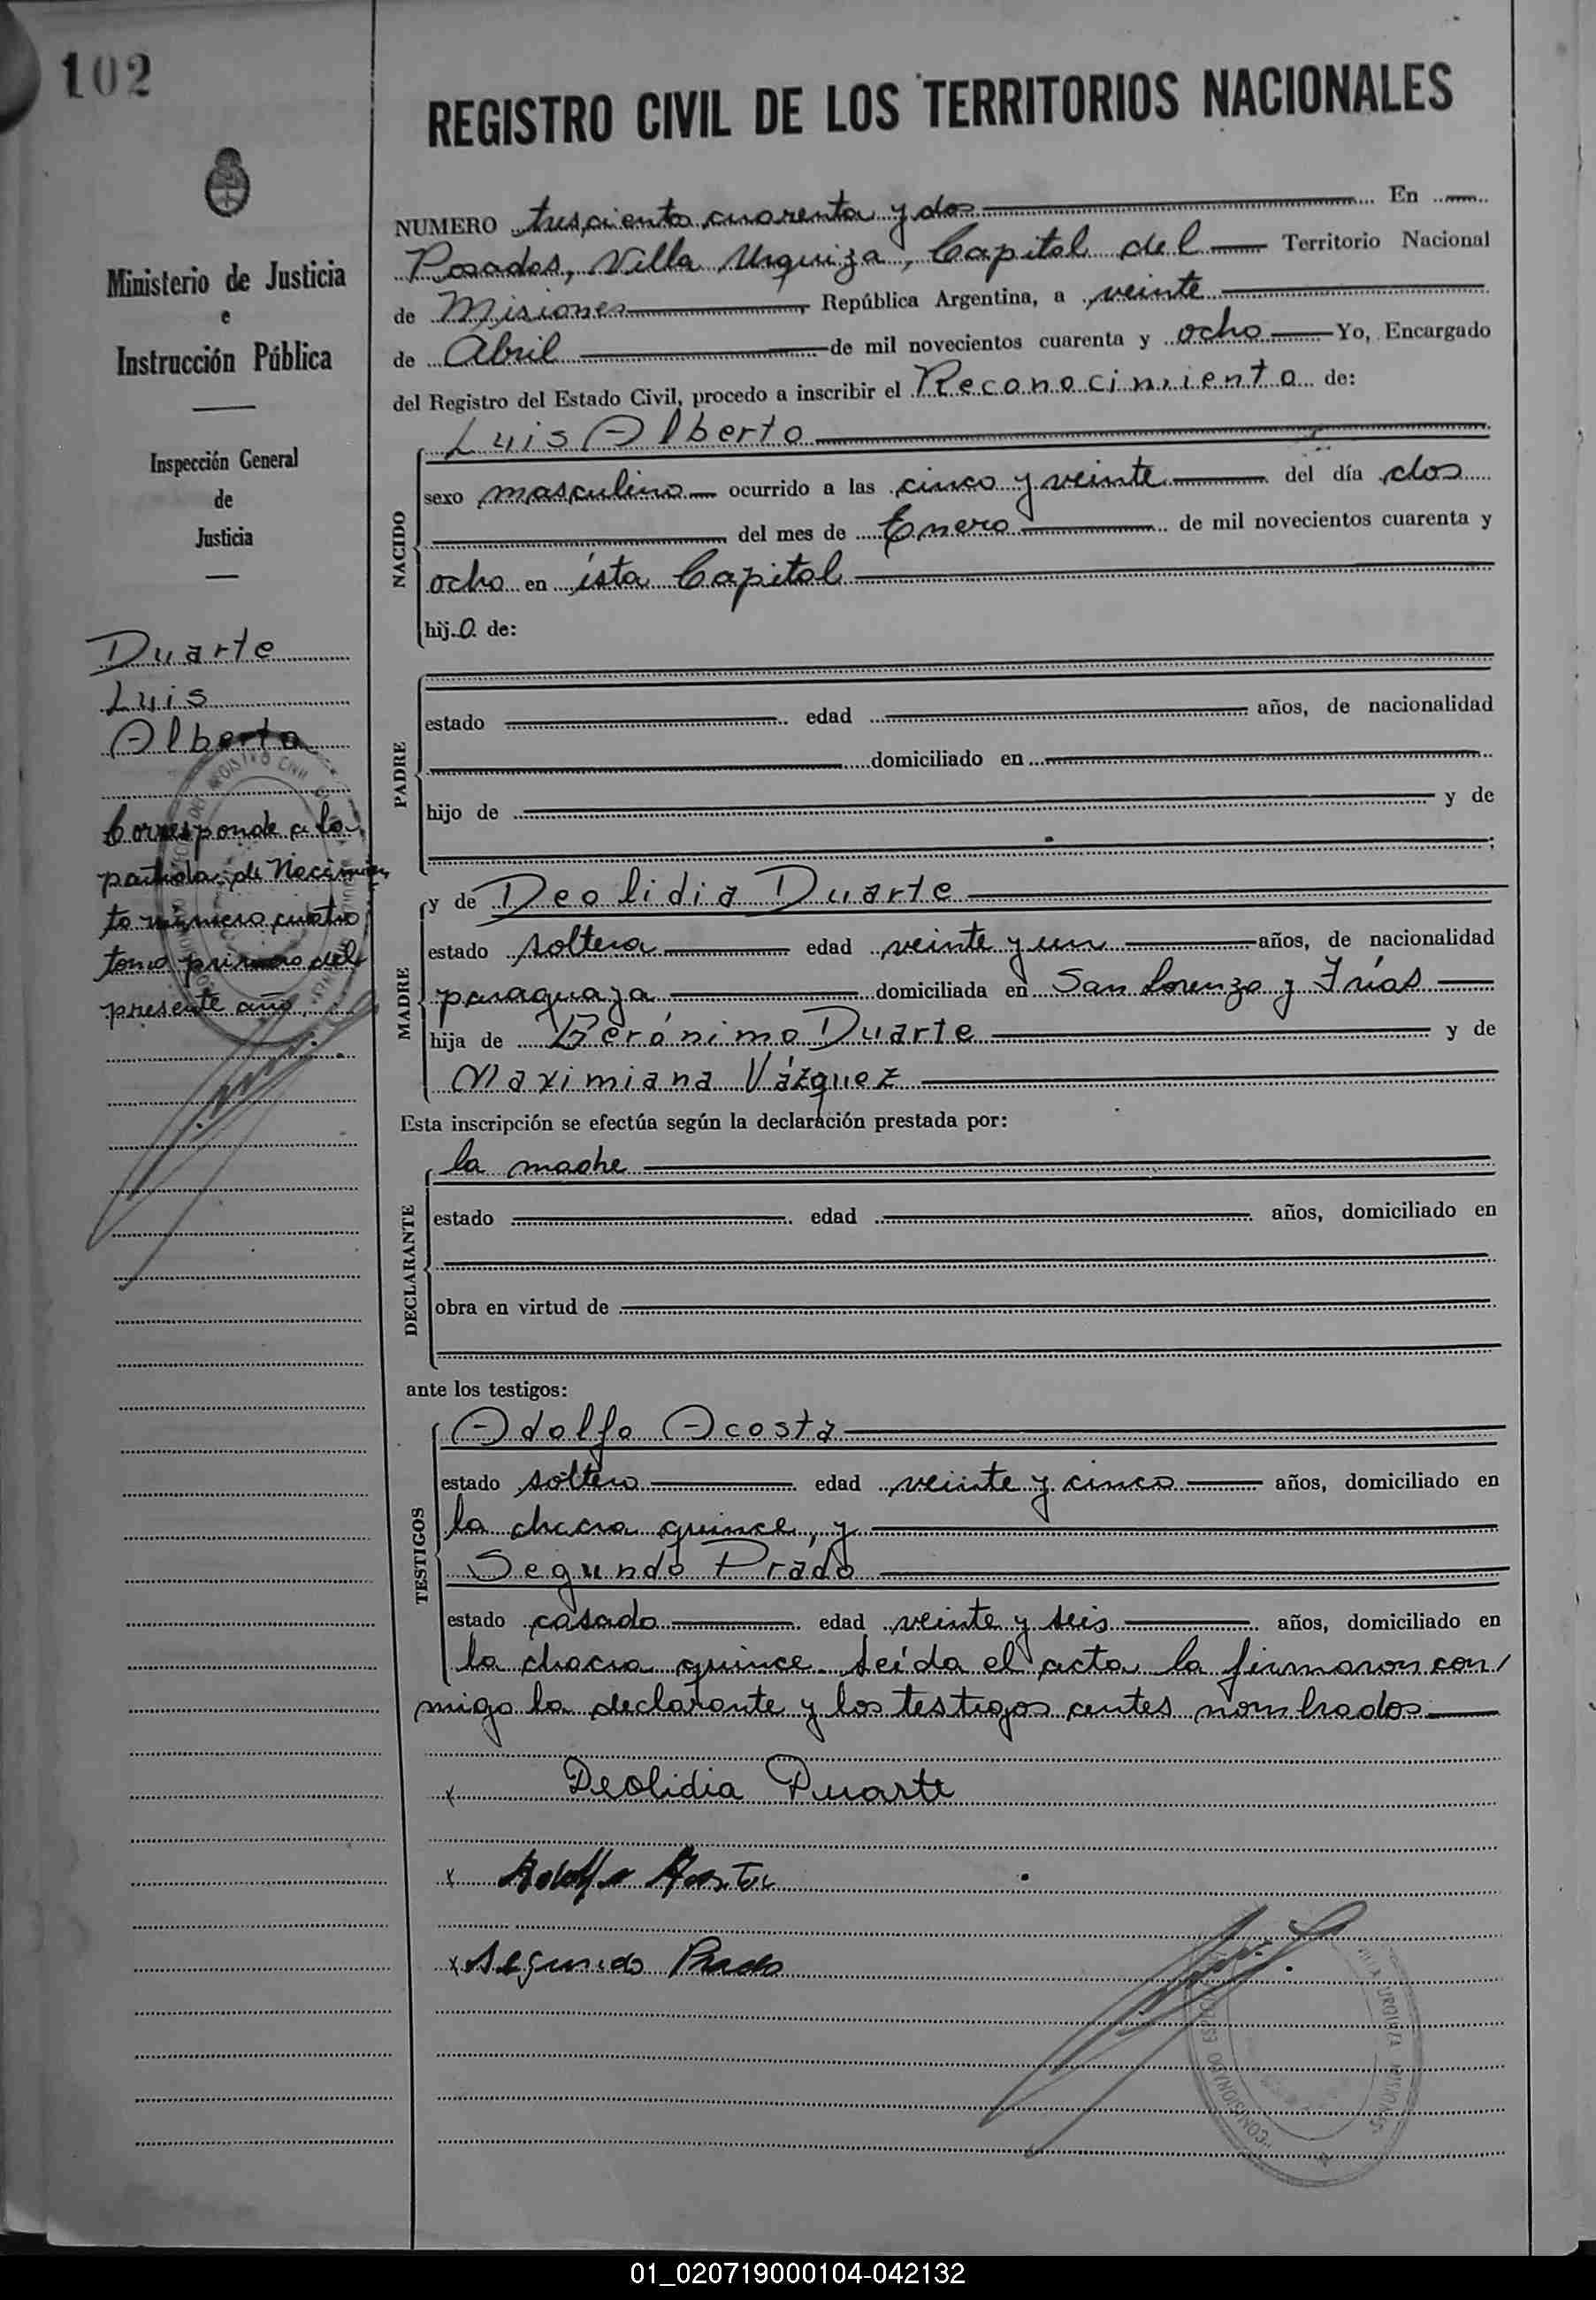 102
REGISTRO CIVIL DE LOS TERRITORIOS NACIONALES
Ministerio de Justicia
e
Instrucción Pública
Inspección General
de
Justicia
Duarte
Luis
Alberto
Corresponde a la
partida de Nacimien
to número cuatro
tomo primero del
presente año.
NUMERO tresciento cuarenta y dos En
Posadas, Villa Urquiza, Capital del Territorio Nacional
de Misiones, República Argentina, a veinte
de Abril de mil novecientos cuarenta y ocho Yo, Encargado
del Registro del Estado Civil, procedo a inscribir el Reconocimiento de:
NACIDO
Luis Alberto
sexo masculino ocurrido a las cinco y veinte del día dos
del mes de Enero de mil novecientos cuarenta y
ocho en ésta Capital
hijo de:
PADRE
estado edad años, de nacionalidad
domiciliado en
hijo de y de
;
MADRE
y de Deolidia Duarte
estado soltera edad veinte y un años, de nacionalidad
paraguaya domiciliada en San Lorenzo y Frías
hija de Gerónimo Duarte y de
Maximiana Vázquez
Esta inscripción se efectúa según la declaración prestada por:
DECLARANTE
la madre
estado edad años, domiciliado en
obra en virtud de
ante los testigos:
TESTIGOS
Adolfo Acosta
estado soltero edad veinte y cinco años, domiciliado en
la chacra quince, y
Segundo Prado
estado casado edad veinte y seis años, domiciliado en
la chacra quince. Leída el acta la firmaron con/
migo la declarante y los testigos antes nombrados
x Deolidia Duarte
x Adolfo Acosta
x Segundo Prado
COMISIONADO URQUIZA MISIONES
01_020719000104-042132